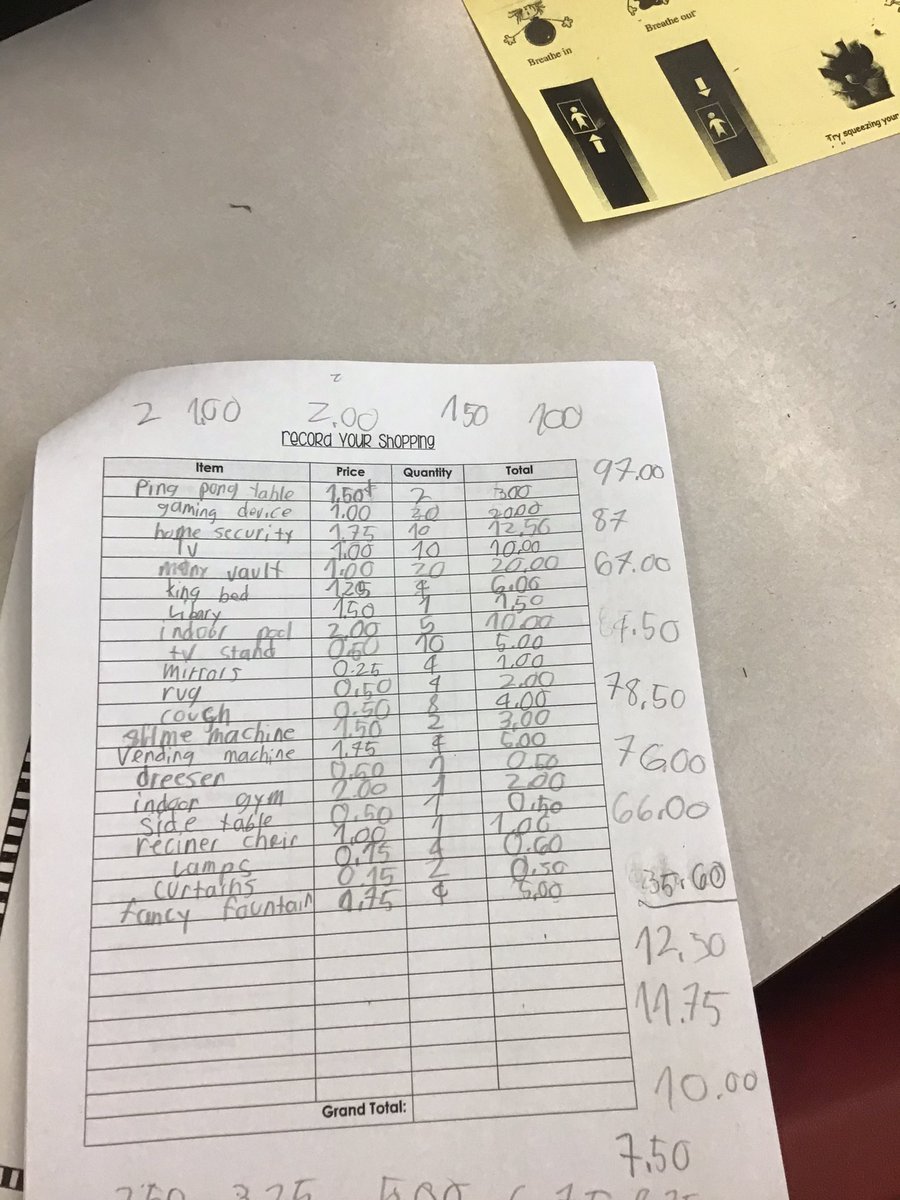 Breathe in
Breathe out
Try squeezing your
2 1.00 2.00 150 100
RECORD YOUR SHOPPING
Item Price Quantity Total
Ping pong table 1.50 2 300 97.00
gaming device 1.00 20 2000
home security 1.75 10 12.50 87
TV 1.00 10 10.00
vault 1.00 20 20.00 67.00
king bed 1.25 4 6.00
Libary 1.50 1 1.50
indoor pool 2.00 5 10.00
tv stand 0.50 10 5.00
mirrors 0.25 4 1.00
rug 0.50 4 2.00 78,50
couch 0.50 8 4.00
slime machine 1.50 2 3,00
Vending machine 1.75 4 5.00 76.00
dreeser 0.50 1 0.50
indoor gym 2.00 1 2.00
side table 0.50 1 0.50 66.00
reciner cheir 1.00 1 1.00
Lamps 0.15 4 0.60
curtains 0.15 2 0.50 35.60
fancy fountain 1.75 4 5,00
12,50
11.75
Grand Total: 10.00
7.50